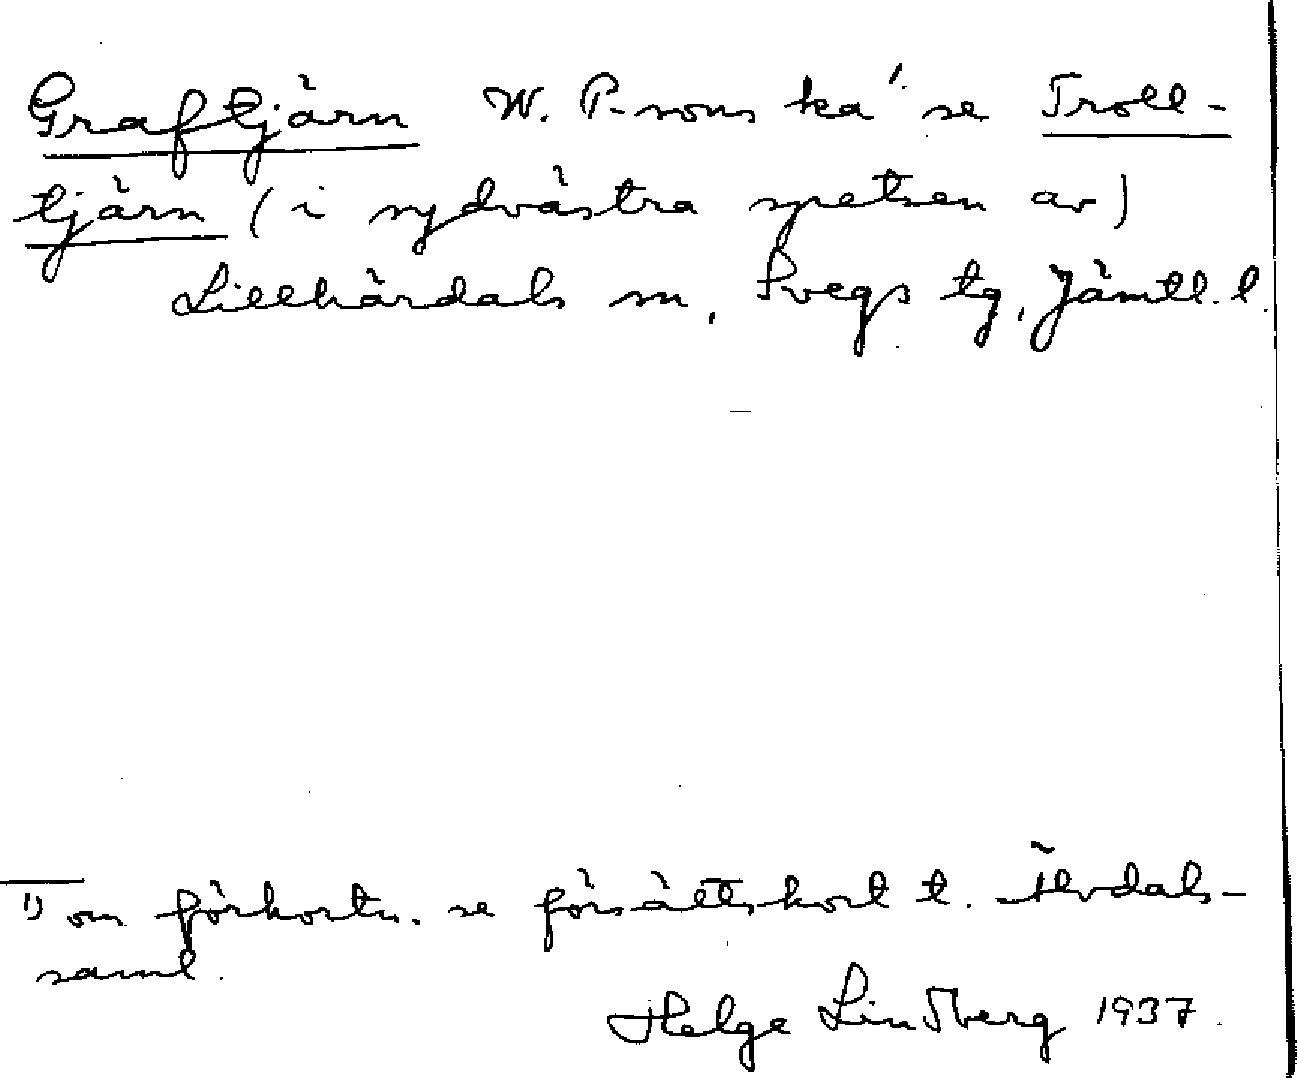 Graftjärn W. P-sons ka' se Troll-
tjärn (i sydvästra spetsen av)
Lillhärdals sn, Svegs tg, Jämtl. l.
1) om förkortn. se försättskort t. Älvdals-
saml.
Helge Lindberg 1937.